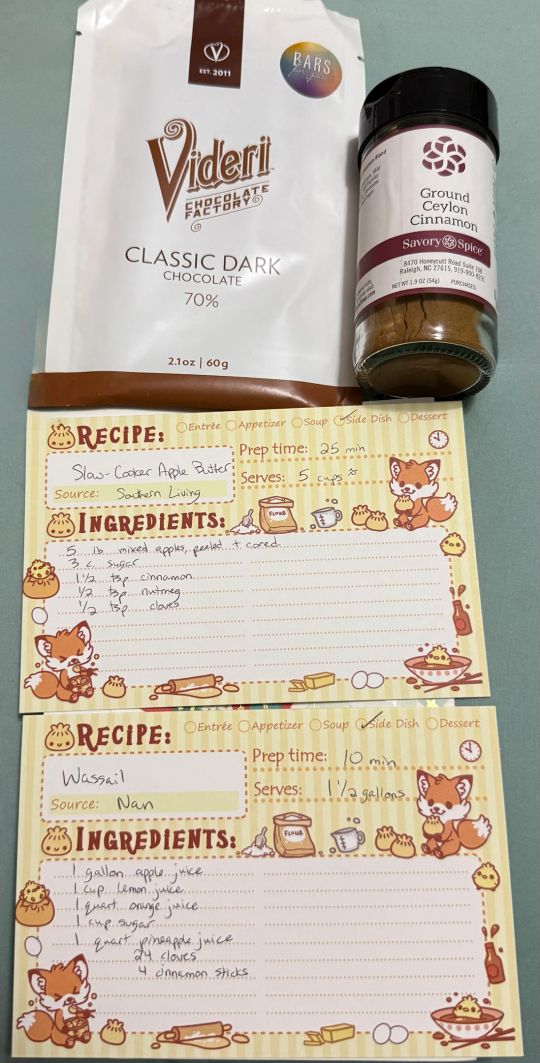 EST. 2011
BARS
for you
Videri
CHOCOLATE
FACTORY
CLASSIC DARK
CHOCOLATE
70%
2.1oz | 60g
Ground
Ceylon
Cinnamon
Savory Spice
8470 Honeycutt Road Suite 108
Raleigh, NC 27615, 919-900-8291
NET WT 1.9 OZ (54g) PURCHASED:
RECIPE:
Entrée Appetizer Soup Side Dish Dessert
Slow-Cooker Apple Butter
Source: Southern Living
Prep time: 25 min
Serves: 5 cups ≈
INGREDIENTS:
FLOUR
5 lb mixed apples, peeled + cored
3 c. sugar
1 1/2 tsp cinnamon
1/2 tsp nutmeg
1/2 tsp cloves
RECIPE:
Entrée Appetizer Soup Side Dish Dessert
Wassail
Source: Nan
Prep time: 10 min
Serves: 1 1/2 gallons
INGREDIENTS:
FLOUR
1 gallon apple juice
1 cup lemon juice
1 quart orange juice
1 cup sugar
1 quart pineapple juice
24 cloves
4 cinnamon sticks